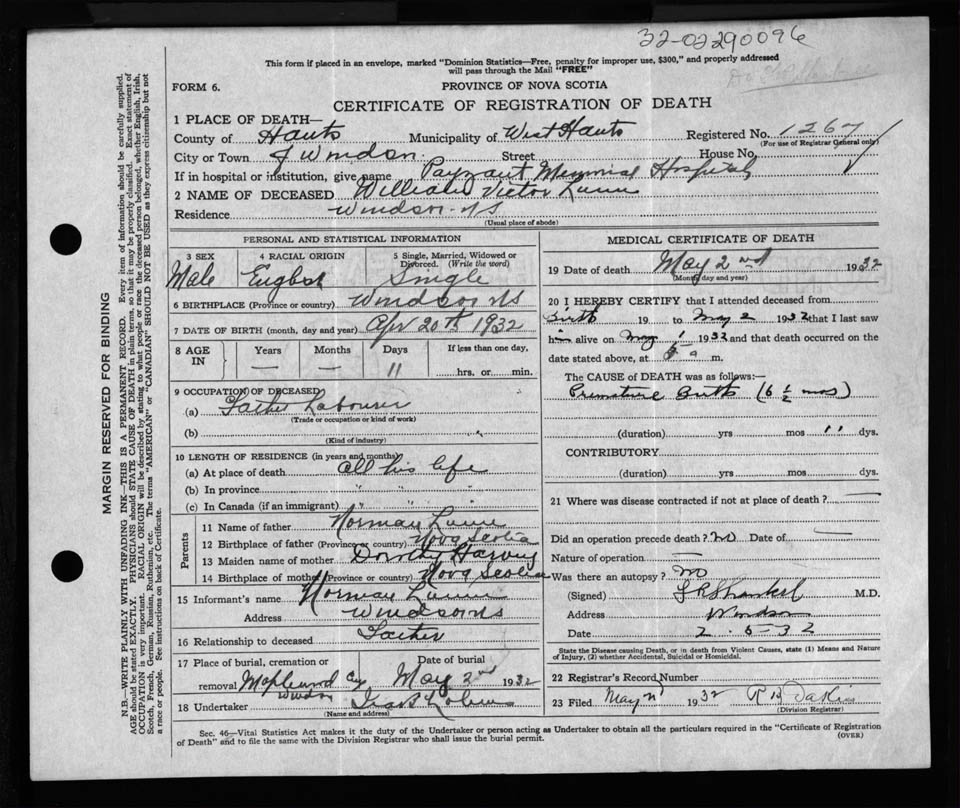 32-02290096
This form if placed in an envelope, marked "Dominion Statistics—Free, penalty for improper use, $300," and properly addressed
will pass through the Mail "FREE"
FORM 6.
PROVINCE OF NOVA SCOTIA
CERTIFICATE OF REGISTRATION OF DEATH
1 PLACE OF DEATH—
County of Hants Municipality of West Hants Registered No. 1267
(For use of Registrar General only)
City or Town Windsor Street House No.
If in hospital or institution, give name Payzant Memorial Hospital
2 NAME OF DECEASED William Victor
Residence Windsor NS
(Usual place of abode)
PERSONAL AND STATISTICAL INFORMATION
3 SEX
Male
4 RACIAL ORIGIN
English
5 Single, Married, Widowed or Divorced. (Write the word)
Single
6 BIRTHPLACE (Province or country) Windsor NS
7 DATE OF BIRTH (month, day and year) Apr 20th 1932
8 AGE IN
Years Months Days If less than one day,
— — 11 hrs. or min.
9 OCCUPATION OF DECEASED
(a) Father Labourer
(Trade or occupation or kind of work)
(b)
(Kind of industry)
10 LENGTH OF RESIDENCE (in years and months)
(a) At place of death all his life
(b) In province " " "
(c) In Canada (if an immigrant) " " "
Parents
11 Name of father Norman
12 Birthplace of father (Province or country) Nova Scotia
13 Maiden name of mother Dorothy Harvey
14 Birthplace of mother (Province or country) Nova Scotia
15 Informant's name Norman
Address Windsor NS
16 Relationship to deceased Father
17 Place of burial, cremation or removal Maplewood Cy Windsor
Date of burial May 2nd 1932
18 Undertaker
(Name and address)
MEDICAL CERTIFICATE OF DEATH
19 Date of death May 2nd 1932
(Month, day and year)
20 I HEREBY CERTIFY that I attended deceased from
Birth 19 to May 2 1932 that I last saw
him alive on May 1 1932 and that death occurred on the
date stated above, at a m.
The CAUSE OF DEATH was as follows:—
Premature birth (6 ½ mos)
(duration) yrs mos 11 dys.
CONTRIBUTORY
(duration) yrs mos dys.
21 Where was disease contracted if not at place of death? —
Did an operation precede death? no Date of —
Nature of operation —
Was there an autopsy? no
(Signed) Shankel M.D.
Address Windsor
Date 2-5-32
State the Disease causing Death, or in death from Violent Causes, state (1) Means and Nature
of Injury, (2) whether Accidental, Suicidal or Homicidal.
22 Registrar's Record Number
23 Filed May 1932
(Division Registrar)
Sec. 46—Vital Statistics Act makes it the duty of the Undertaker or person acting as Undertaker to obtain all the particulars required in the "Certificate of Registration
of Death" and to file the same with the Division Registrar who shall issue the burial permit.
(OVER)
MARGIN RESERVED FOR BINDING
N.B.—WRITE PLAINLY WITH UNFADING INK—THIS IS A PERMANENT RECORD. Every item of information should be carefully supplied.
AGE should be stated EXACTLY. PHYSICIANS should STATE CAUSE OF DEATH in plain terms, so that it may be properly classified. Exact statement of
OCCUPATION is very important. RACIAL ORIGIN will be described by stating to what people or race the deceased person belonged, whether English, Irish,
Scotch, French, German, Russian, Ruthenian, etc. The terms "AMERICAN" or "CANADIAN" SHOULD NOT BE USED as they express citizenship but not
a race or people. See instructions on back of Certificate.